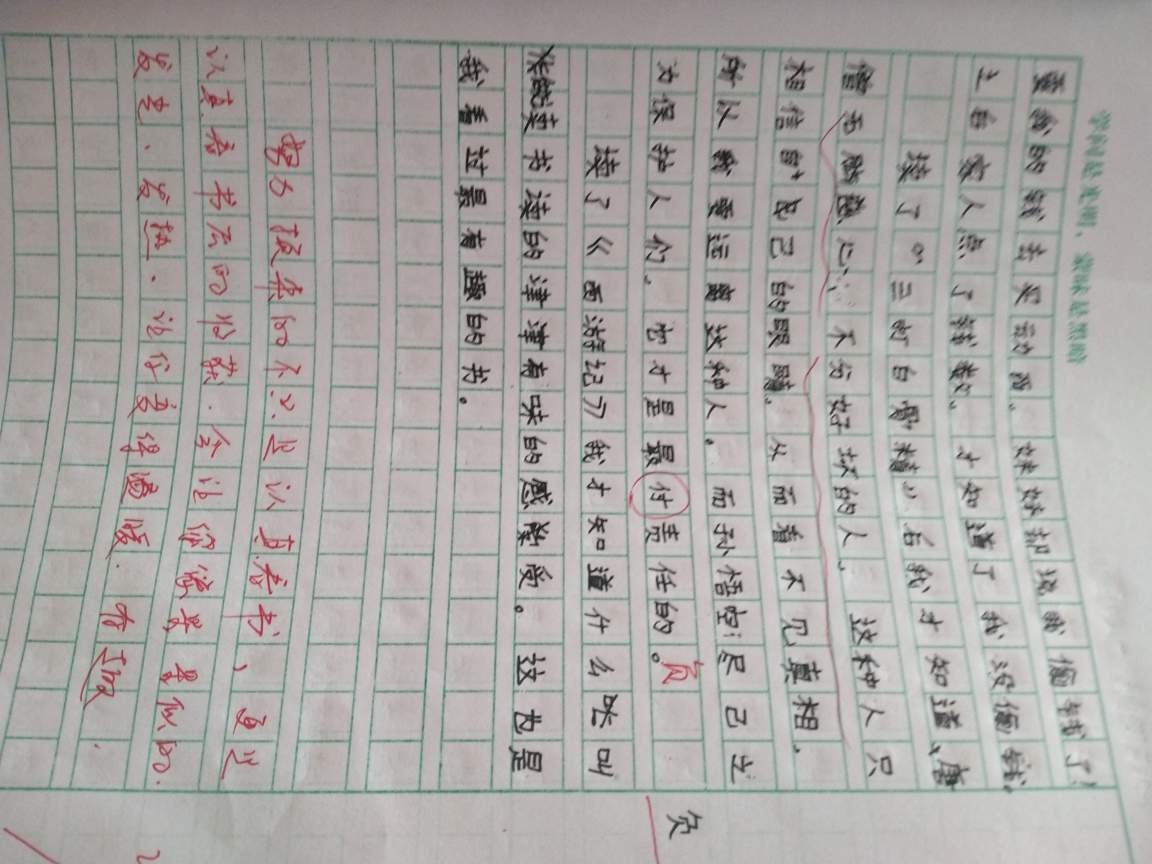 学问是光明，蒙昧是黑暗
我的钱去买东西。妹妹却说我偷钱了！
家人点了钱数。才知道了我没偷钱。
读了《三打白骨精》后我才知道，唐
僧 心，不分好坏的人。这种人只
相信自己的眼睛。从而看不见真相。
所以我要远离这种人。而孙悟空尽己之
力保护人们。它才是最付责任的。
负
读了《西游纪》我才知道什么叫
读书读的津津有味的感受。这也是
我看过最有趣的书。
努力 的不只是认真看书、更是
认真看书后的收获，会让你像星星似的
发光、发热。让你变得温暖。
负